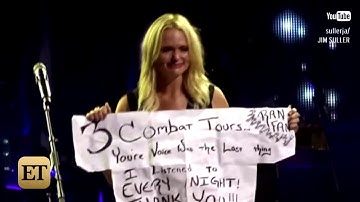 YouTube
sullerja/
JIM SULLER
3 COMBAT TOURS...
You're Voice Was the Last thing
I Listened to
EVERY NIGHT!
THANK YOU!!!
ET